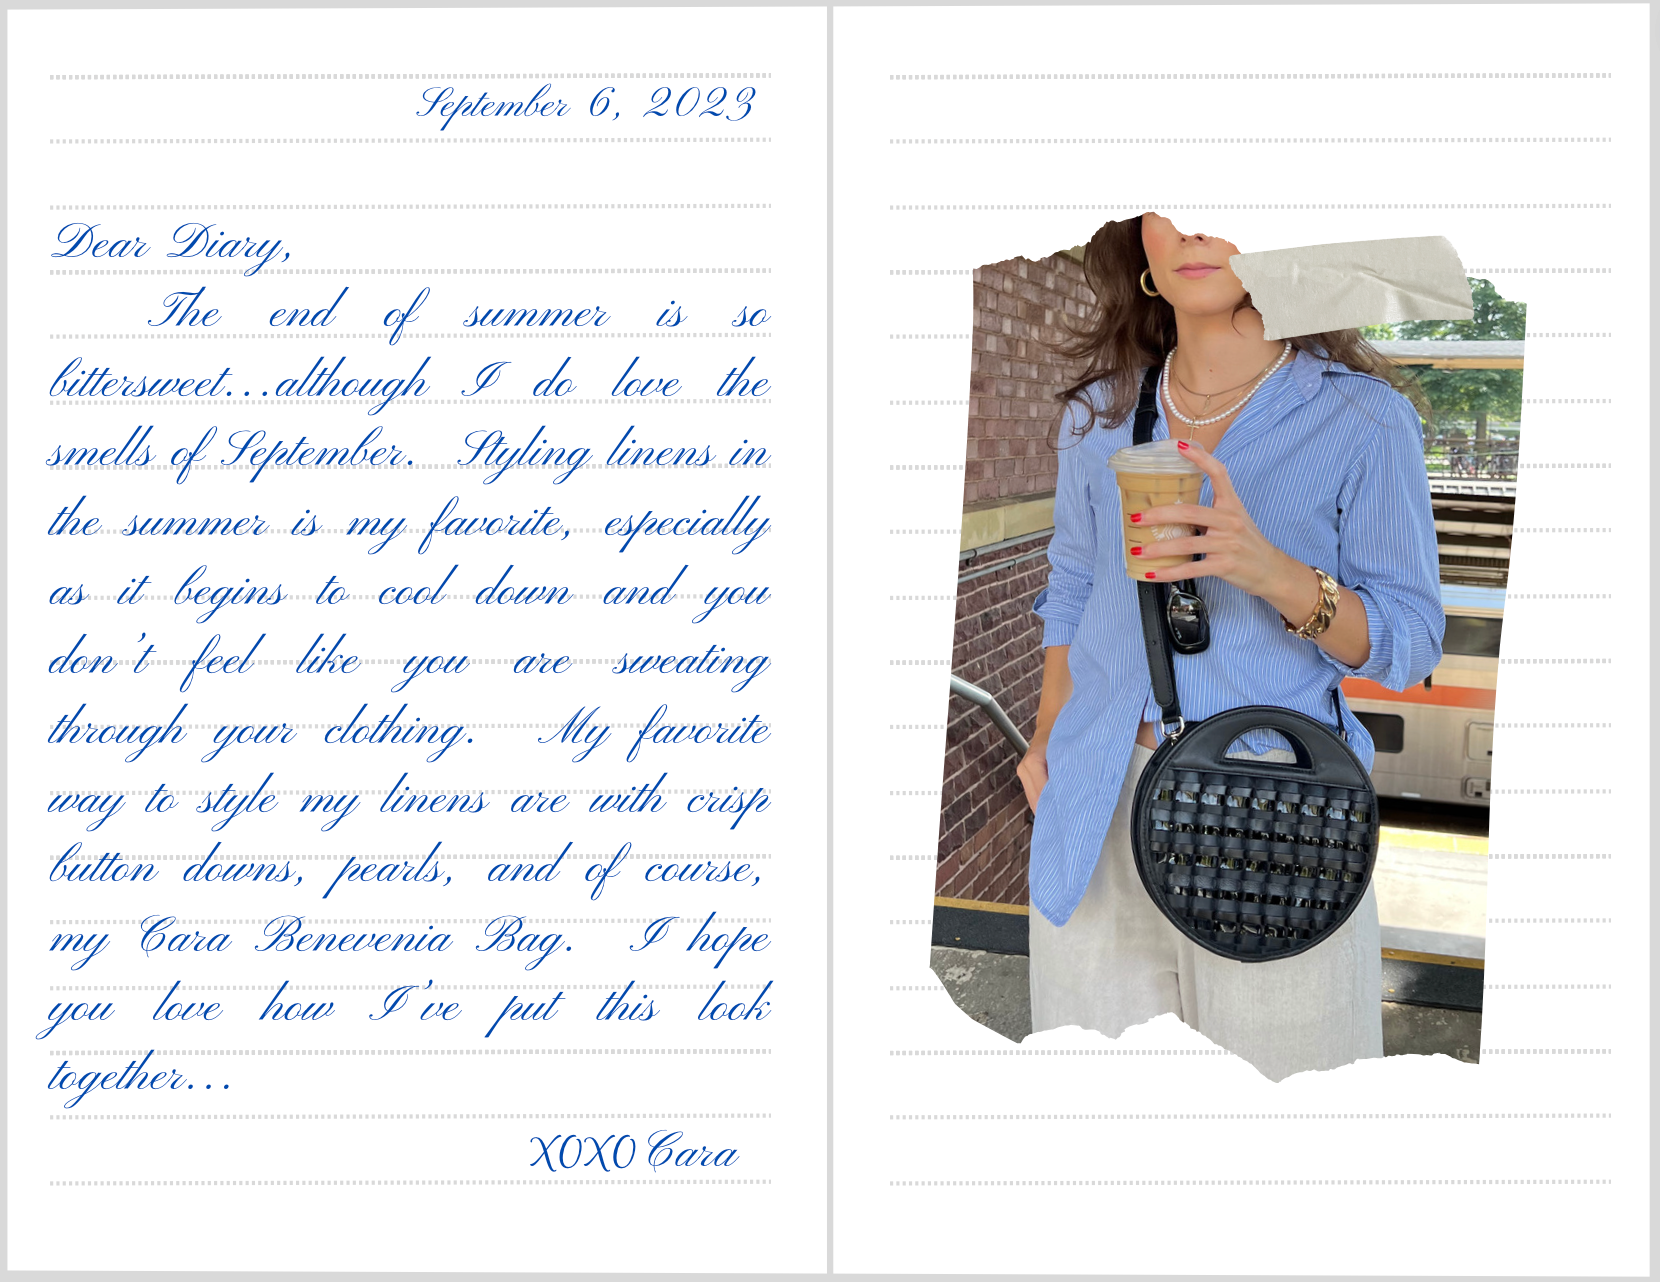 September 6, 2023
Dear Diary,
The end of summer is so
bittersweet...although I do love the
smells of September. Styling linens in
the summer is my favorite, especially
as it begins to cool down and you
don't feel like you are sweating
through your clothing. My favorite
way to style my linens are with crisp
button downs, pearls, and of course,
my Cara Benevenia Bag. I hope
you love how I've put this look
together...
XOXO Cara